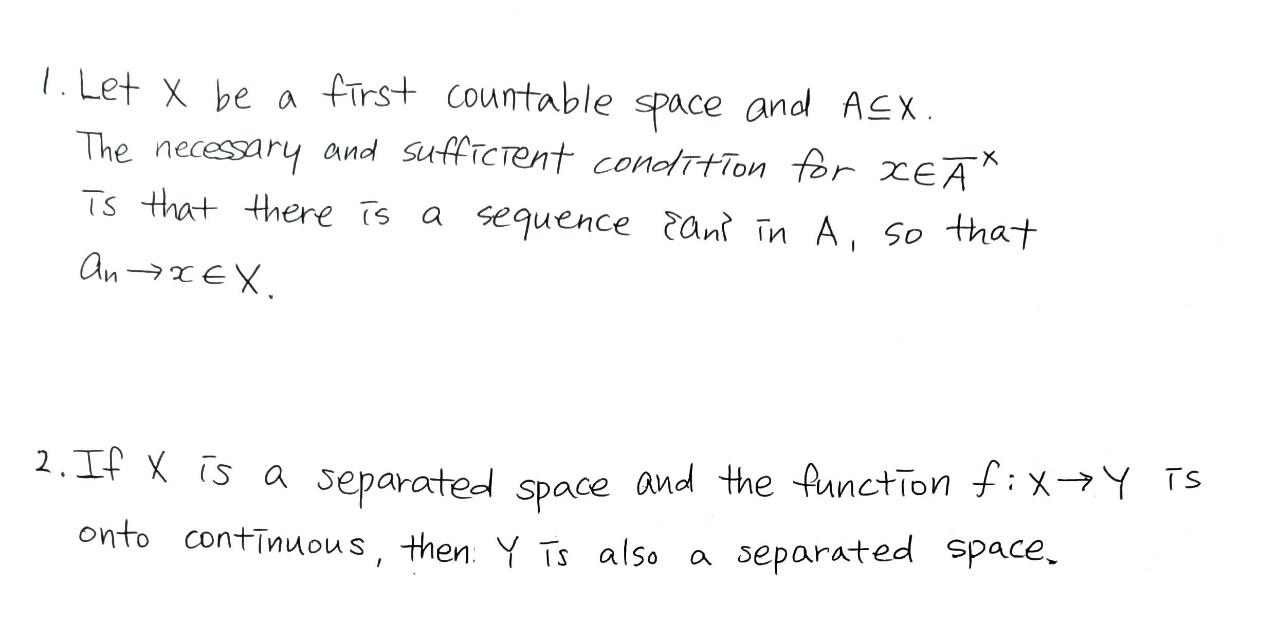 1. Let X be a first countable space and A⊆X.
The necessary and sufficient condition for x∈A̅ˣ
is that there is a sequence {an} in A, so that
an→x∈X.
2. If X is a separated space and the function f:X→Y is
onto continuous, then: Y is also a separated space.